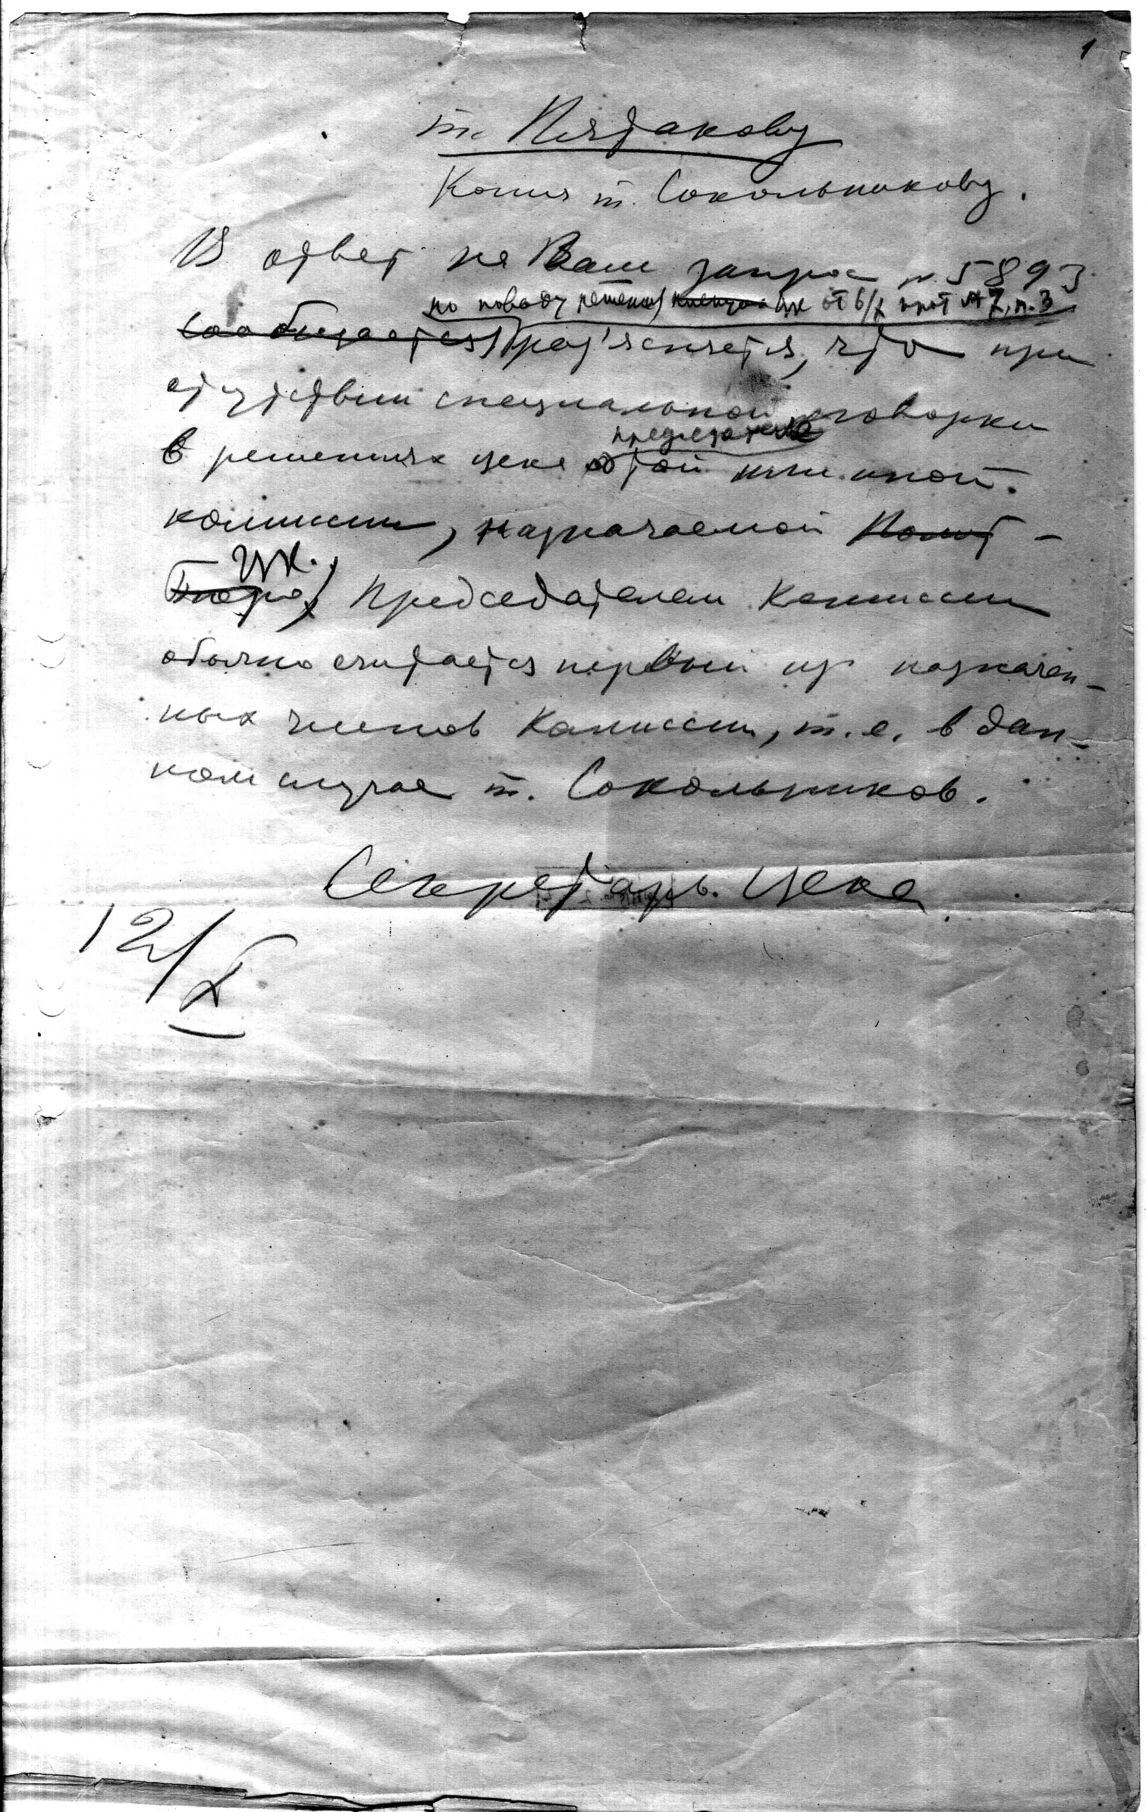 1
т. Пятакову
Копия т. Сокольникову.
В ответ на Ваш запрос № 5893
по поводу решения пленума цк от 6/X прот № 7, п. 3
сообщается раз'ясняется, что при
отсутствии специальной оговорки
председателе
в решениях цека о той или иной
комиссии, назначаемой Полит-
ЦК.,
Бюро, Председателем Комиссии
обычно считается первый из назначен-
ных членов Комиссии, т.е. в дан-
ном случае т. Сокольников.
Секретарь Цека
12/X